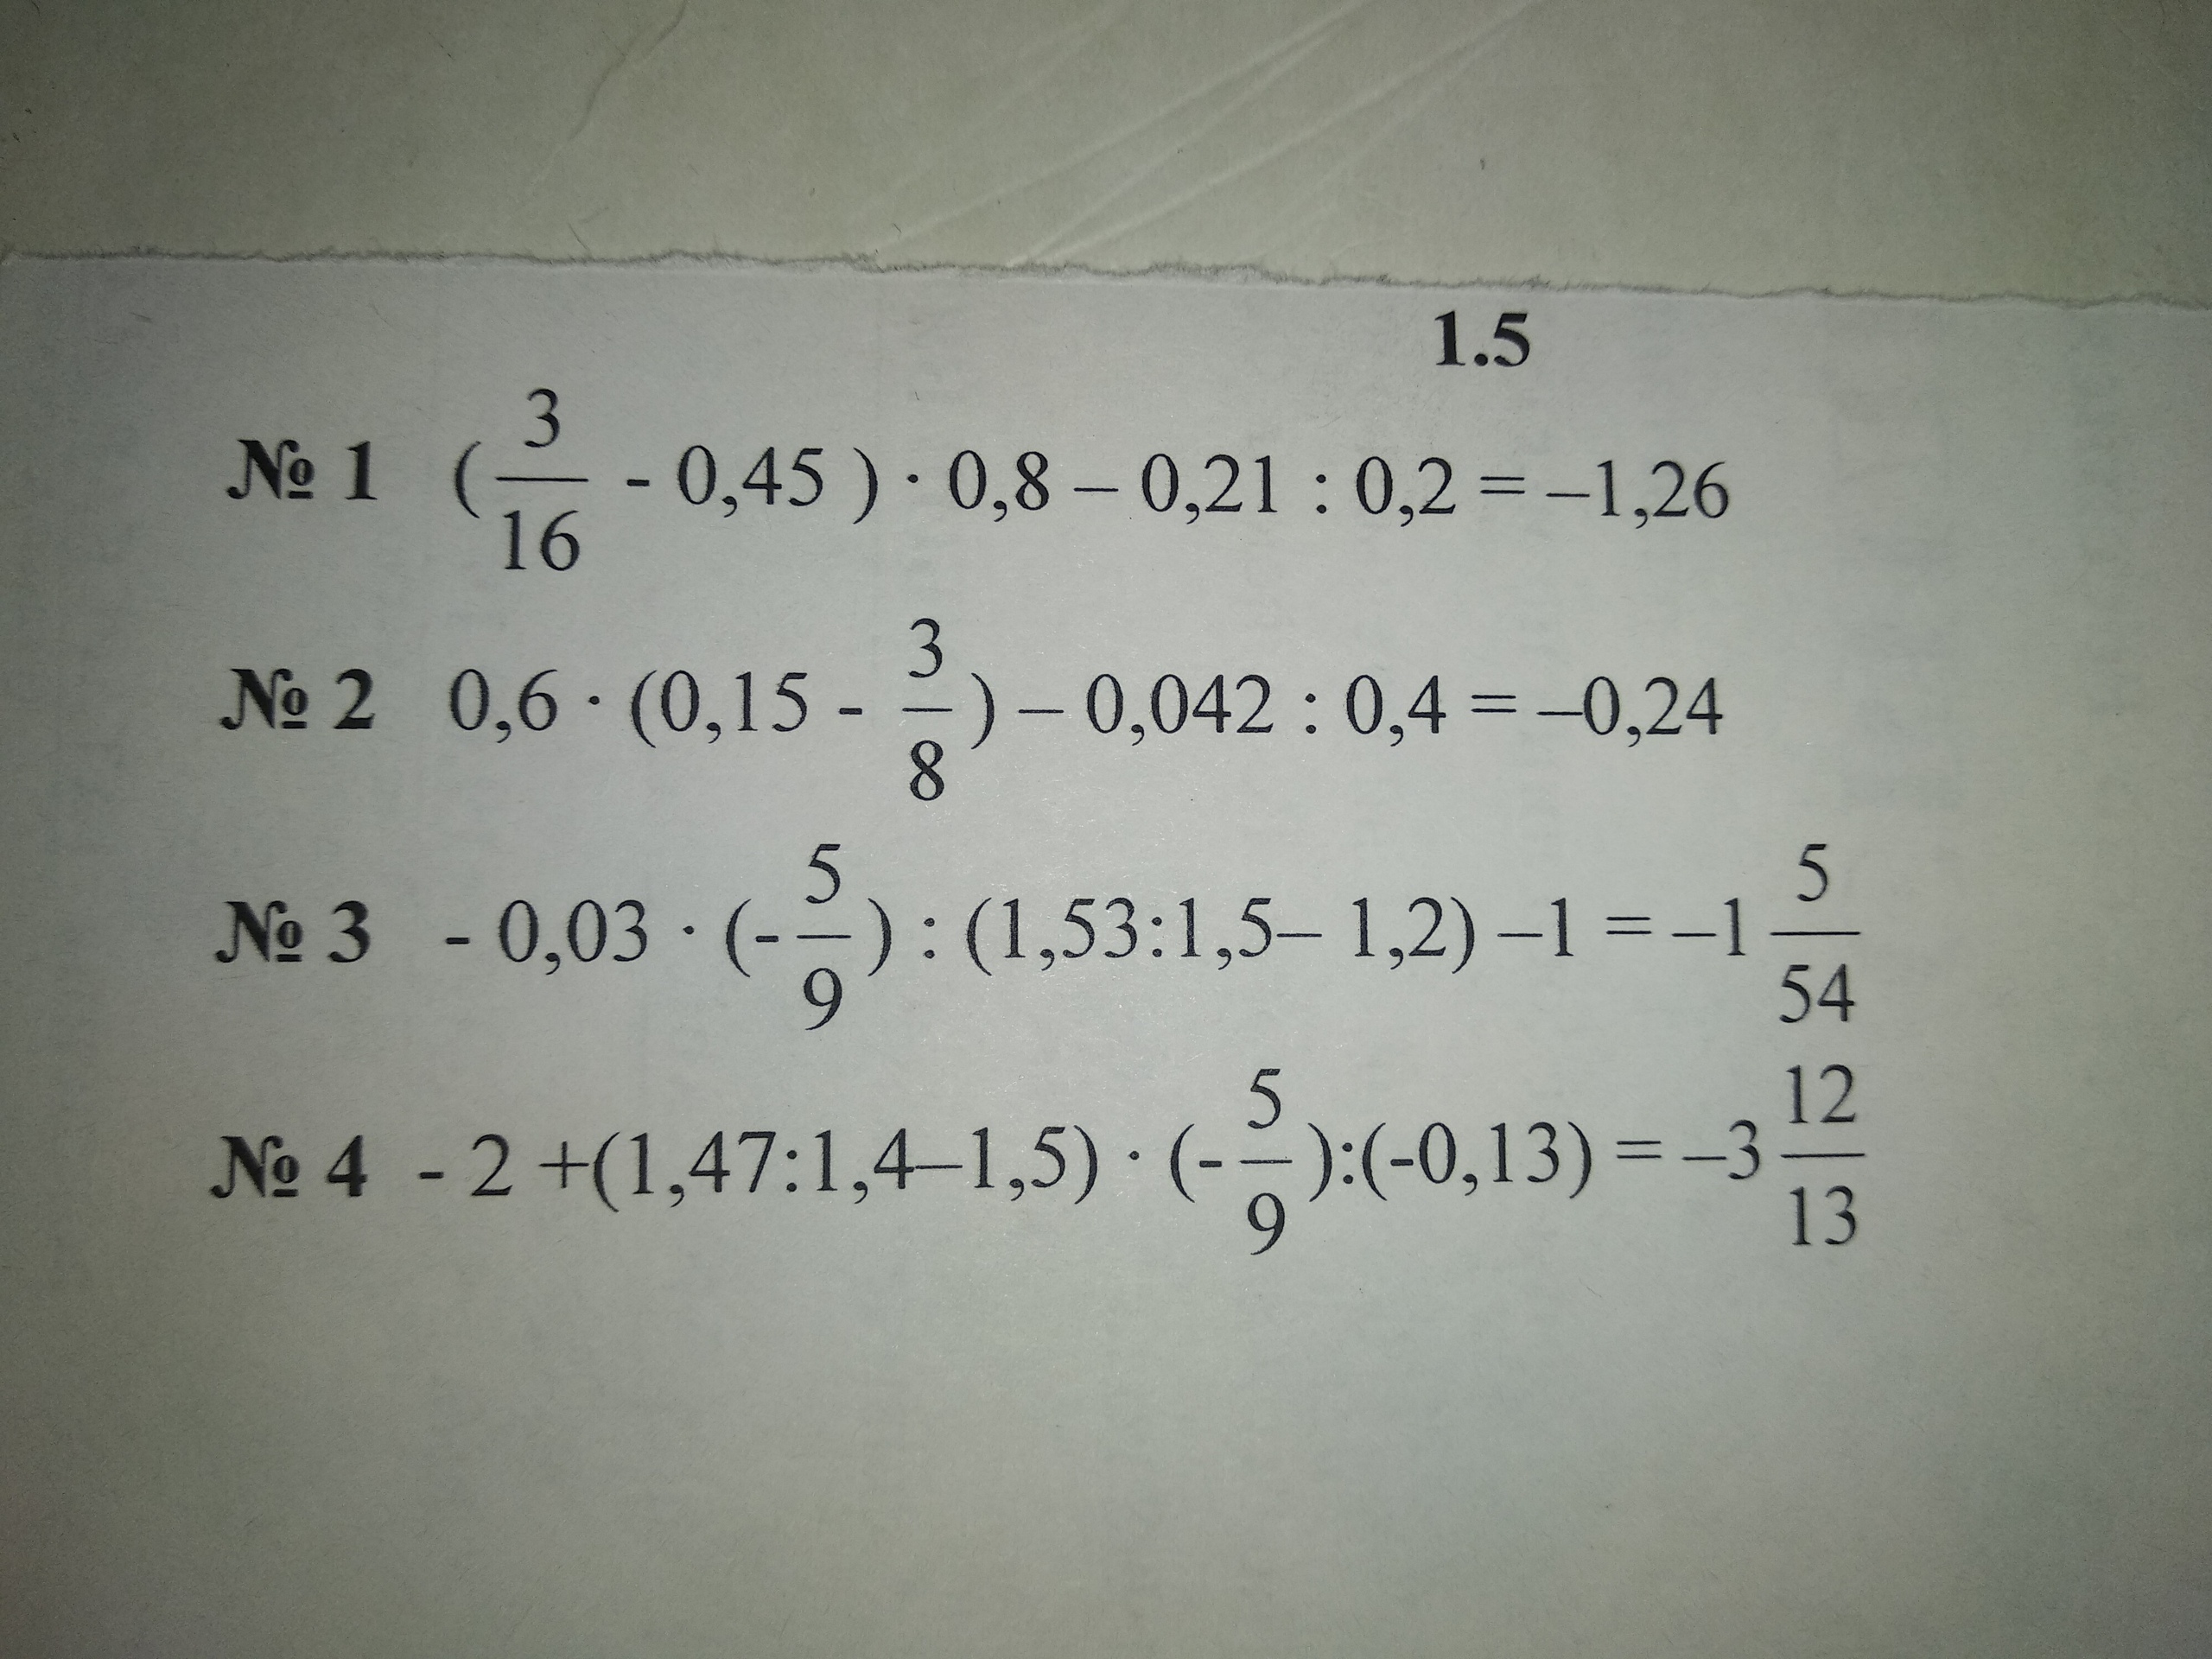 1.5
№ 1 (3/16 - 0,45 ) · 0,8 – 0,21 : 0,2 = –1,26
№ 2 0,6 · (0,15 - 3/8) – 0,042 : 0,4 = –0,24
№ 3 - 0,03 · (-5/9) : (1,53:1,5– 1,2) –1 = –1 5/54
№ 4 - 2 +(1,47:1,4–1,5) · (-5/9):(-0,13) = –3 12/13